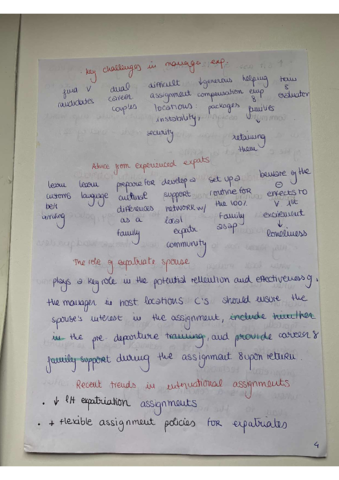 key challenges in manage exp.
find V dual difficult generous helping train
candidates career assignment compensation exp &
couples locations packages & families evaluater
instability, ↓
security retaining
them
Advice from experienced expats
learn learn prepare for develop a set up a beware of the
customs language cultural support routine for ⊖
bef differences network w/ the 100% effects to
as a local family V fit
family expat asap excitement
community ↓
loneliness
The role of expatriate spouse
plays a key role in the potential retention and effectiveness of
the manager in host locations C's should insure the
spouse's interest in the assignment, include him/her
in the pre departure training, and provide career &
family support during the assignment & upon return.
Recent trends in international assignments
• ↓ l/t expatriation assignments
• + flexible assignment policies for expatriates
4